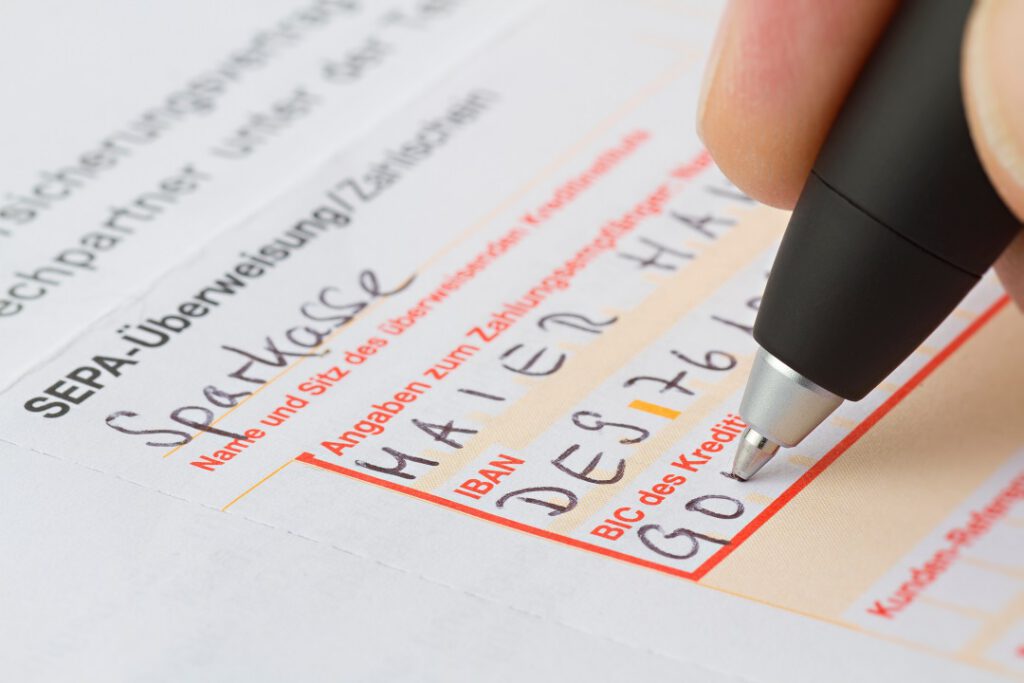 unter der
SEPA-Überweisung/Zahlschein
Sparkasse
Name und Sitz des überweisenden Kreditinstituts
Angaben zum Zahlungsempfänger:
MAIER HA
IBAN
DE91 76
BIC des Krediti
GO
Kunden-Referen